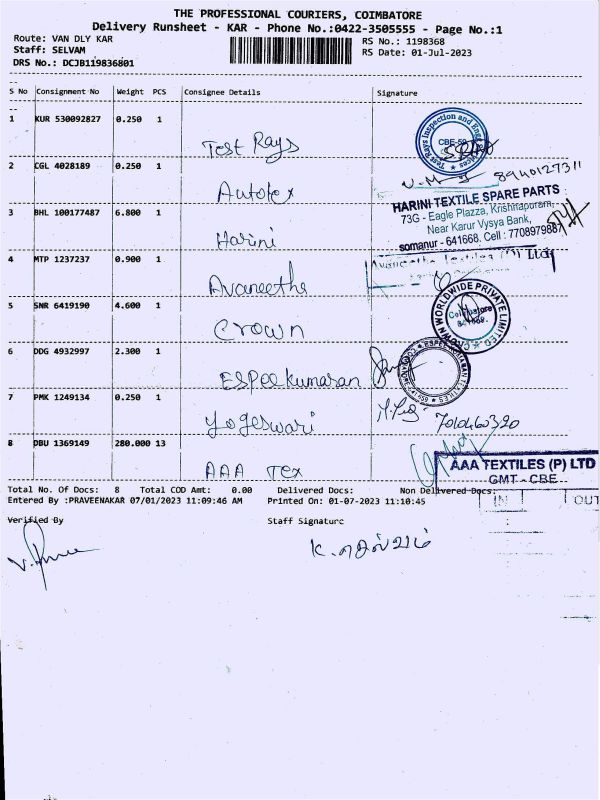 THE PROFESSIONAL COURIERS, COIMBATORE
Delivery Runsheet - KAR - Phone No.:0422-3505555 - Page No.:1
Route: VAN DLY KAR RS No.: 1198368
Staff: SELVAM RS Date: 01-Jul-2023
DRS No.: DCJB119836801
S No Consignment No Weight PCS Consignee Details Signature
1 KUR 530092827 0.250 1
Test Rays
2 CGL 4028189 0.250 1
Autotex
8940127311
3 BHL 100177487 6.800 1
Harini
HARINI TEXTILE SPARE PARTS
73G - Eagle Plazza, Krishnapuram,
Near Karur Vysya Bank,
somanur - 641668. Cell : 7708979887
4 MTP 1237237 0.900 1
Avaneetha
5 SNR 6419190 4.600 1
Crown
6 DDG 4932997 2.300 1
ESPeekumaran
7 PMK 1249134 0.250 1
Yogeswari
8 DBU 1369149 280.000 13
AAA Tex
AAA TEXTILES (P) LTD
GMT - CBE
IN OUT
Total No. Of Docs: 8 Total COD Amt: 0.00 Delivered Docs: Non Delivered Docs:
Entered By :PRAVEENAKAR 07/01/2023 11:09:46 AM Printed On: 01-07-2023 11:10:45
Verified By Staff Signature